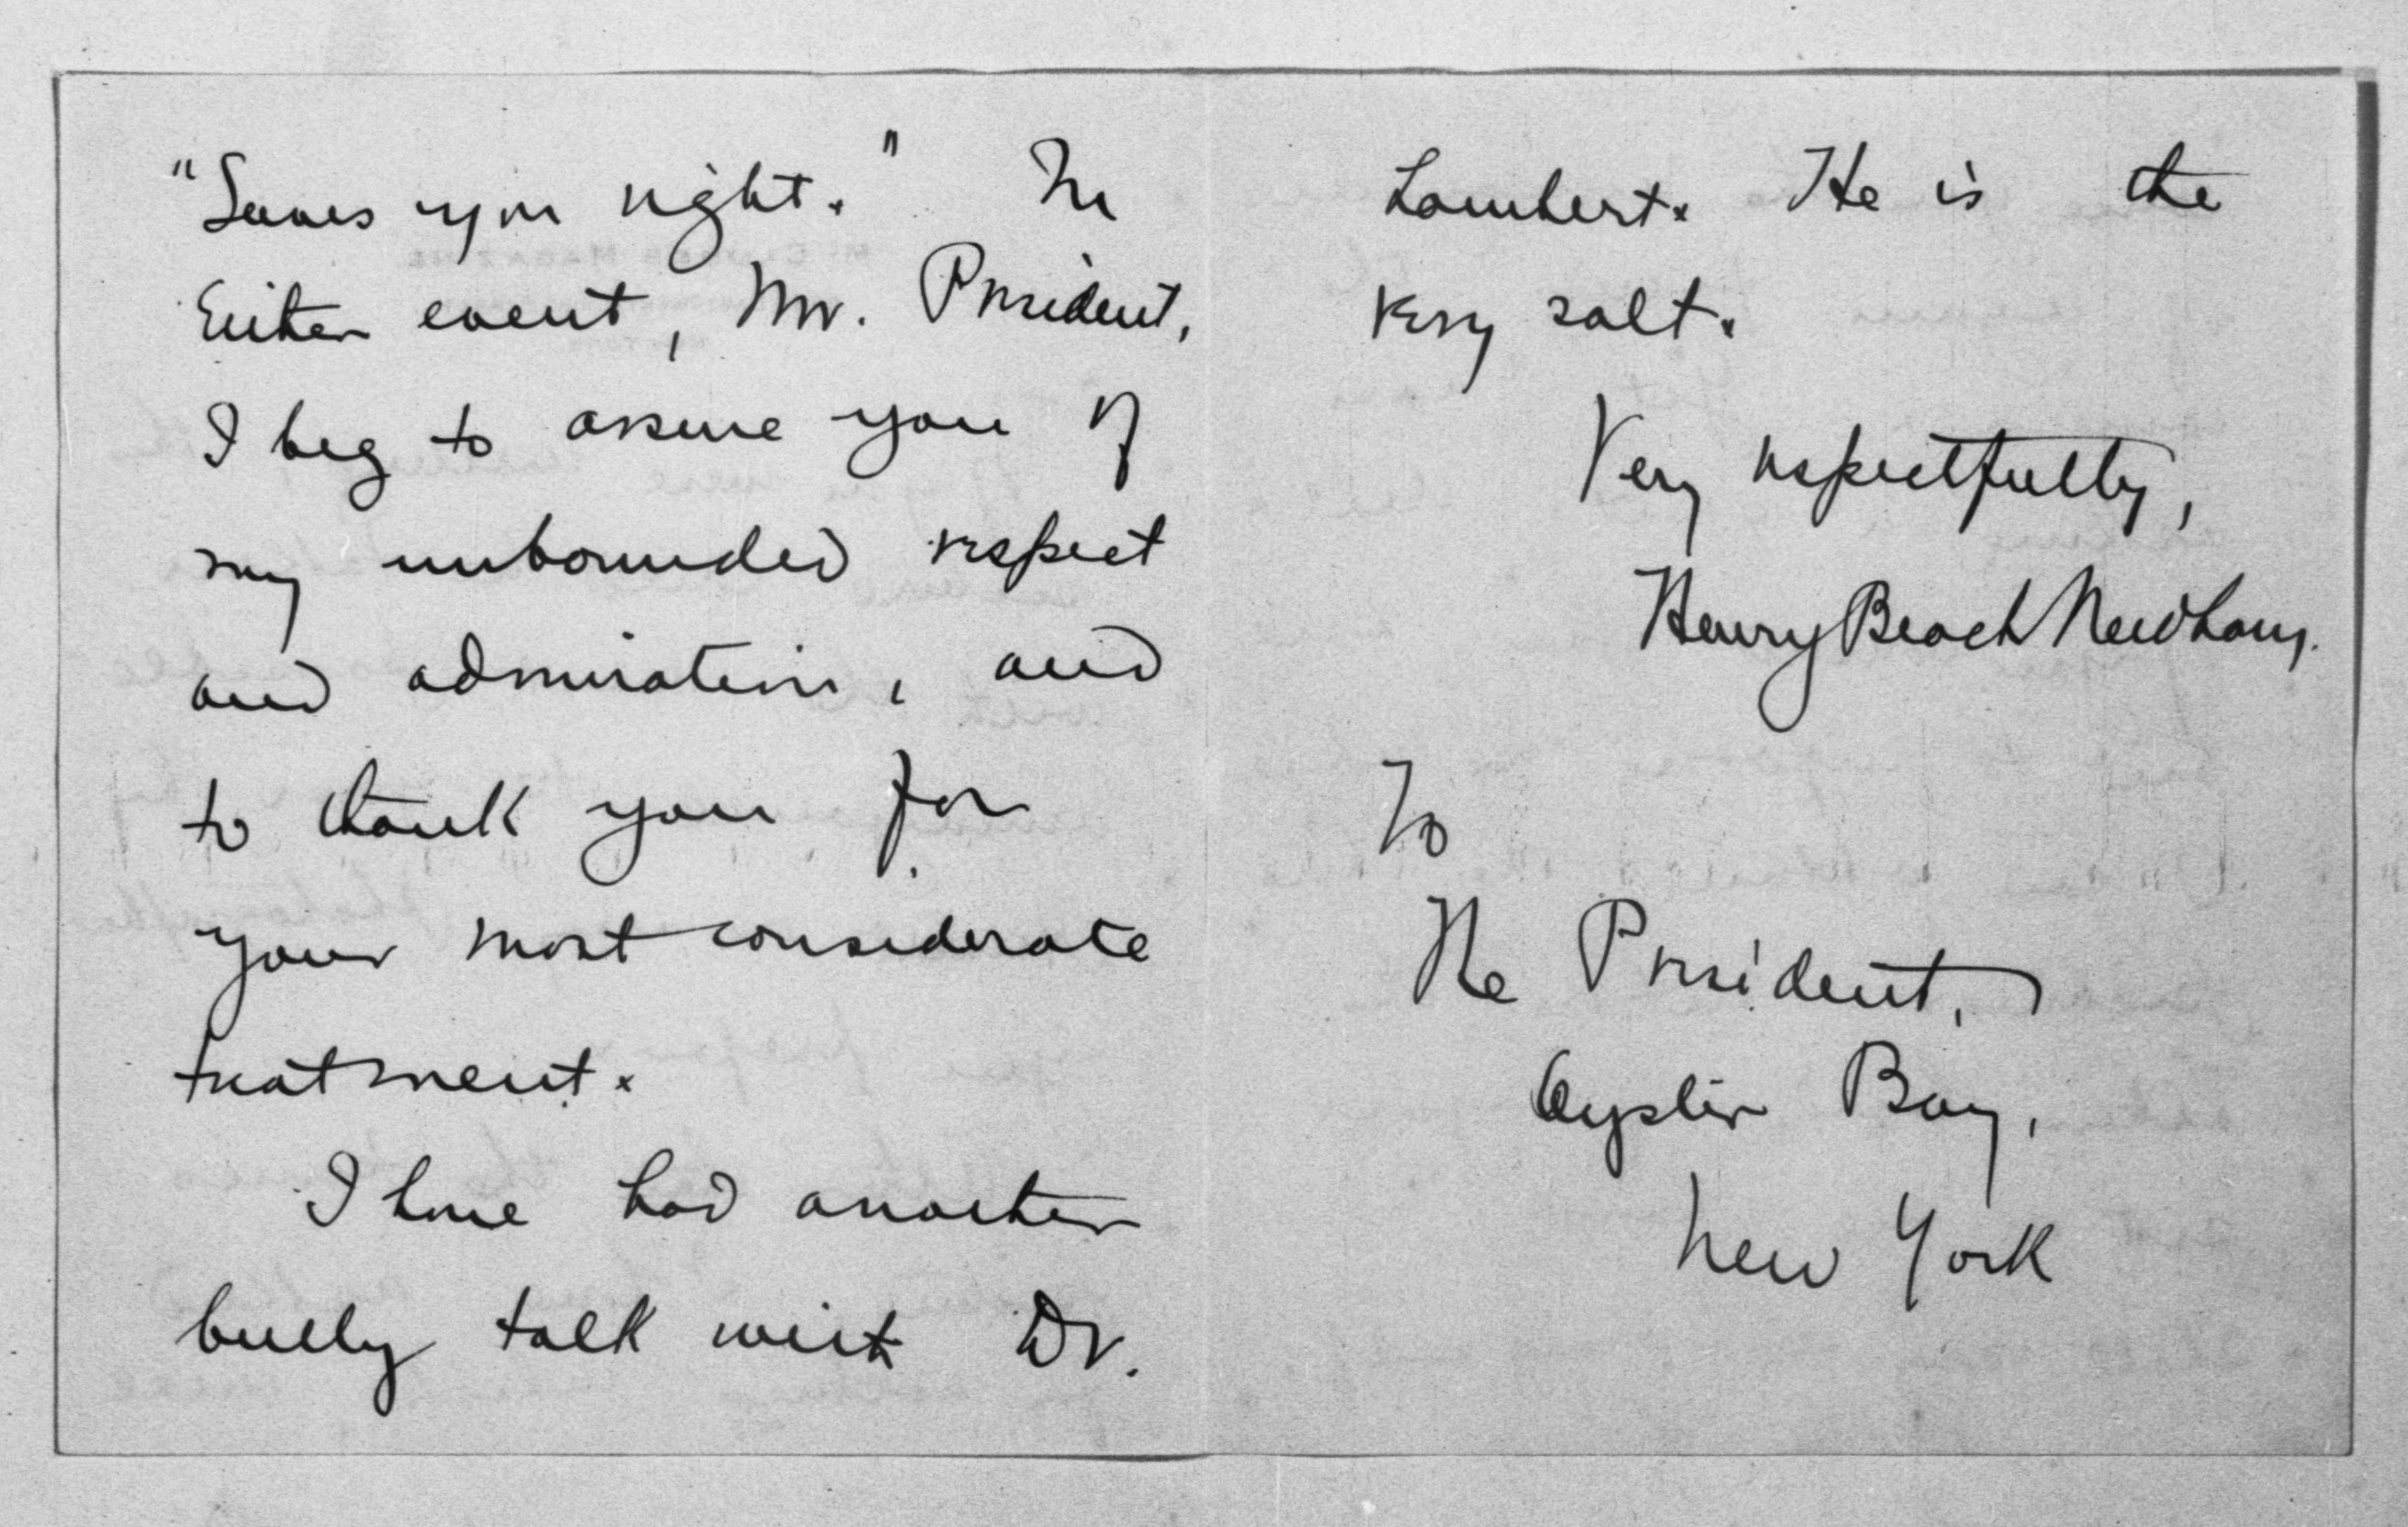 "Serves you right." In
Either event, Mr. President,
I beg to assure you of
my unbounded respect
and admiration, and
to thank you for
your most considerate
treatment.
I have had another
bully talk with Dr.
Lambert. He is the
very salt.
Very respectfully,
Henry Beach Needham.
To
The President,
Oyster Bay,
New York